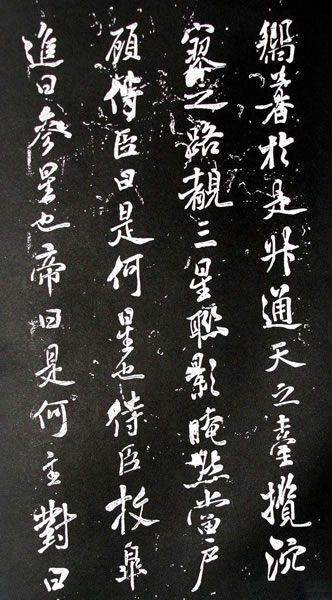 於是升通天之臺攬泬
寥之路覩三星聯影晻然當戶
顧侍臣曰是何星也侍臣枚皋
進曰參星也帝曰是何主對曰